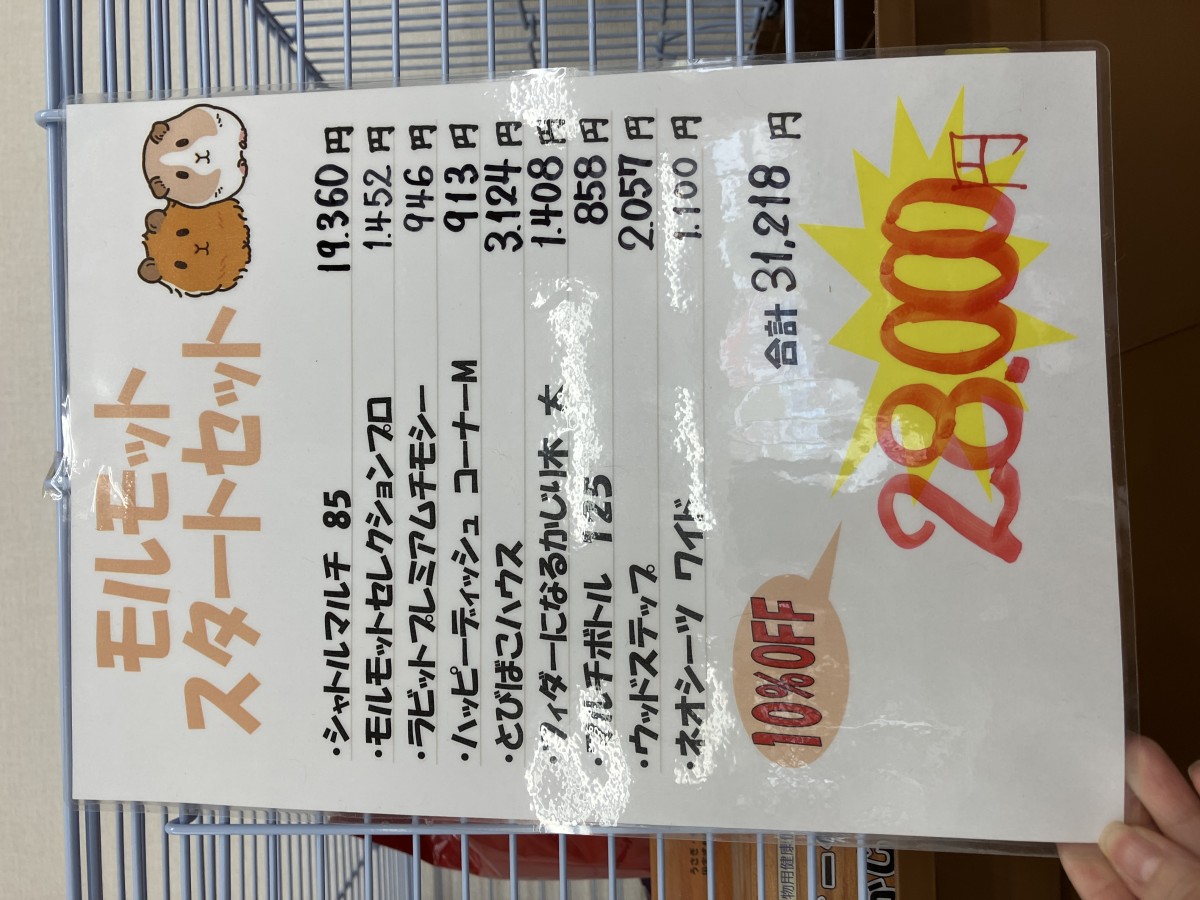 モルモット
スタートセット
・シャトルマルチ 85 19.360 円
・モルモットセレクションプロ 1.452 円
・ラビットプレミアムチモシー 946 円
・ハッピーディッシュ コーナーM 913 円
・とびばこハウス 3.124 円
・フィーダーになるかじり木 大 1.408 円
・マルチボトル 125 858 円
・ウッドステップ 2.057 円
・ネオシーツ ワイド 1.100 円
合計 31,218 円
10%OFF
28.000円
うさぎ